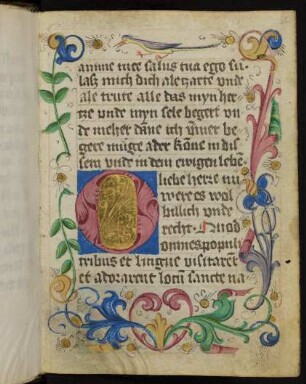 anime tue salus tua ego su
lasz mich dich alczarte vnde
ale trute alle das myn her
tze vnde myn sele begert vn
de meher dane ich vmer be
gere muge ader kone in dis
sem vnde in dem ewigen lebe
O liebe herre nu
were es wol
billich vnde
recht. Quod
omnes populi
tribus et lingue visitaret
et adorarent locu sancte na